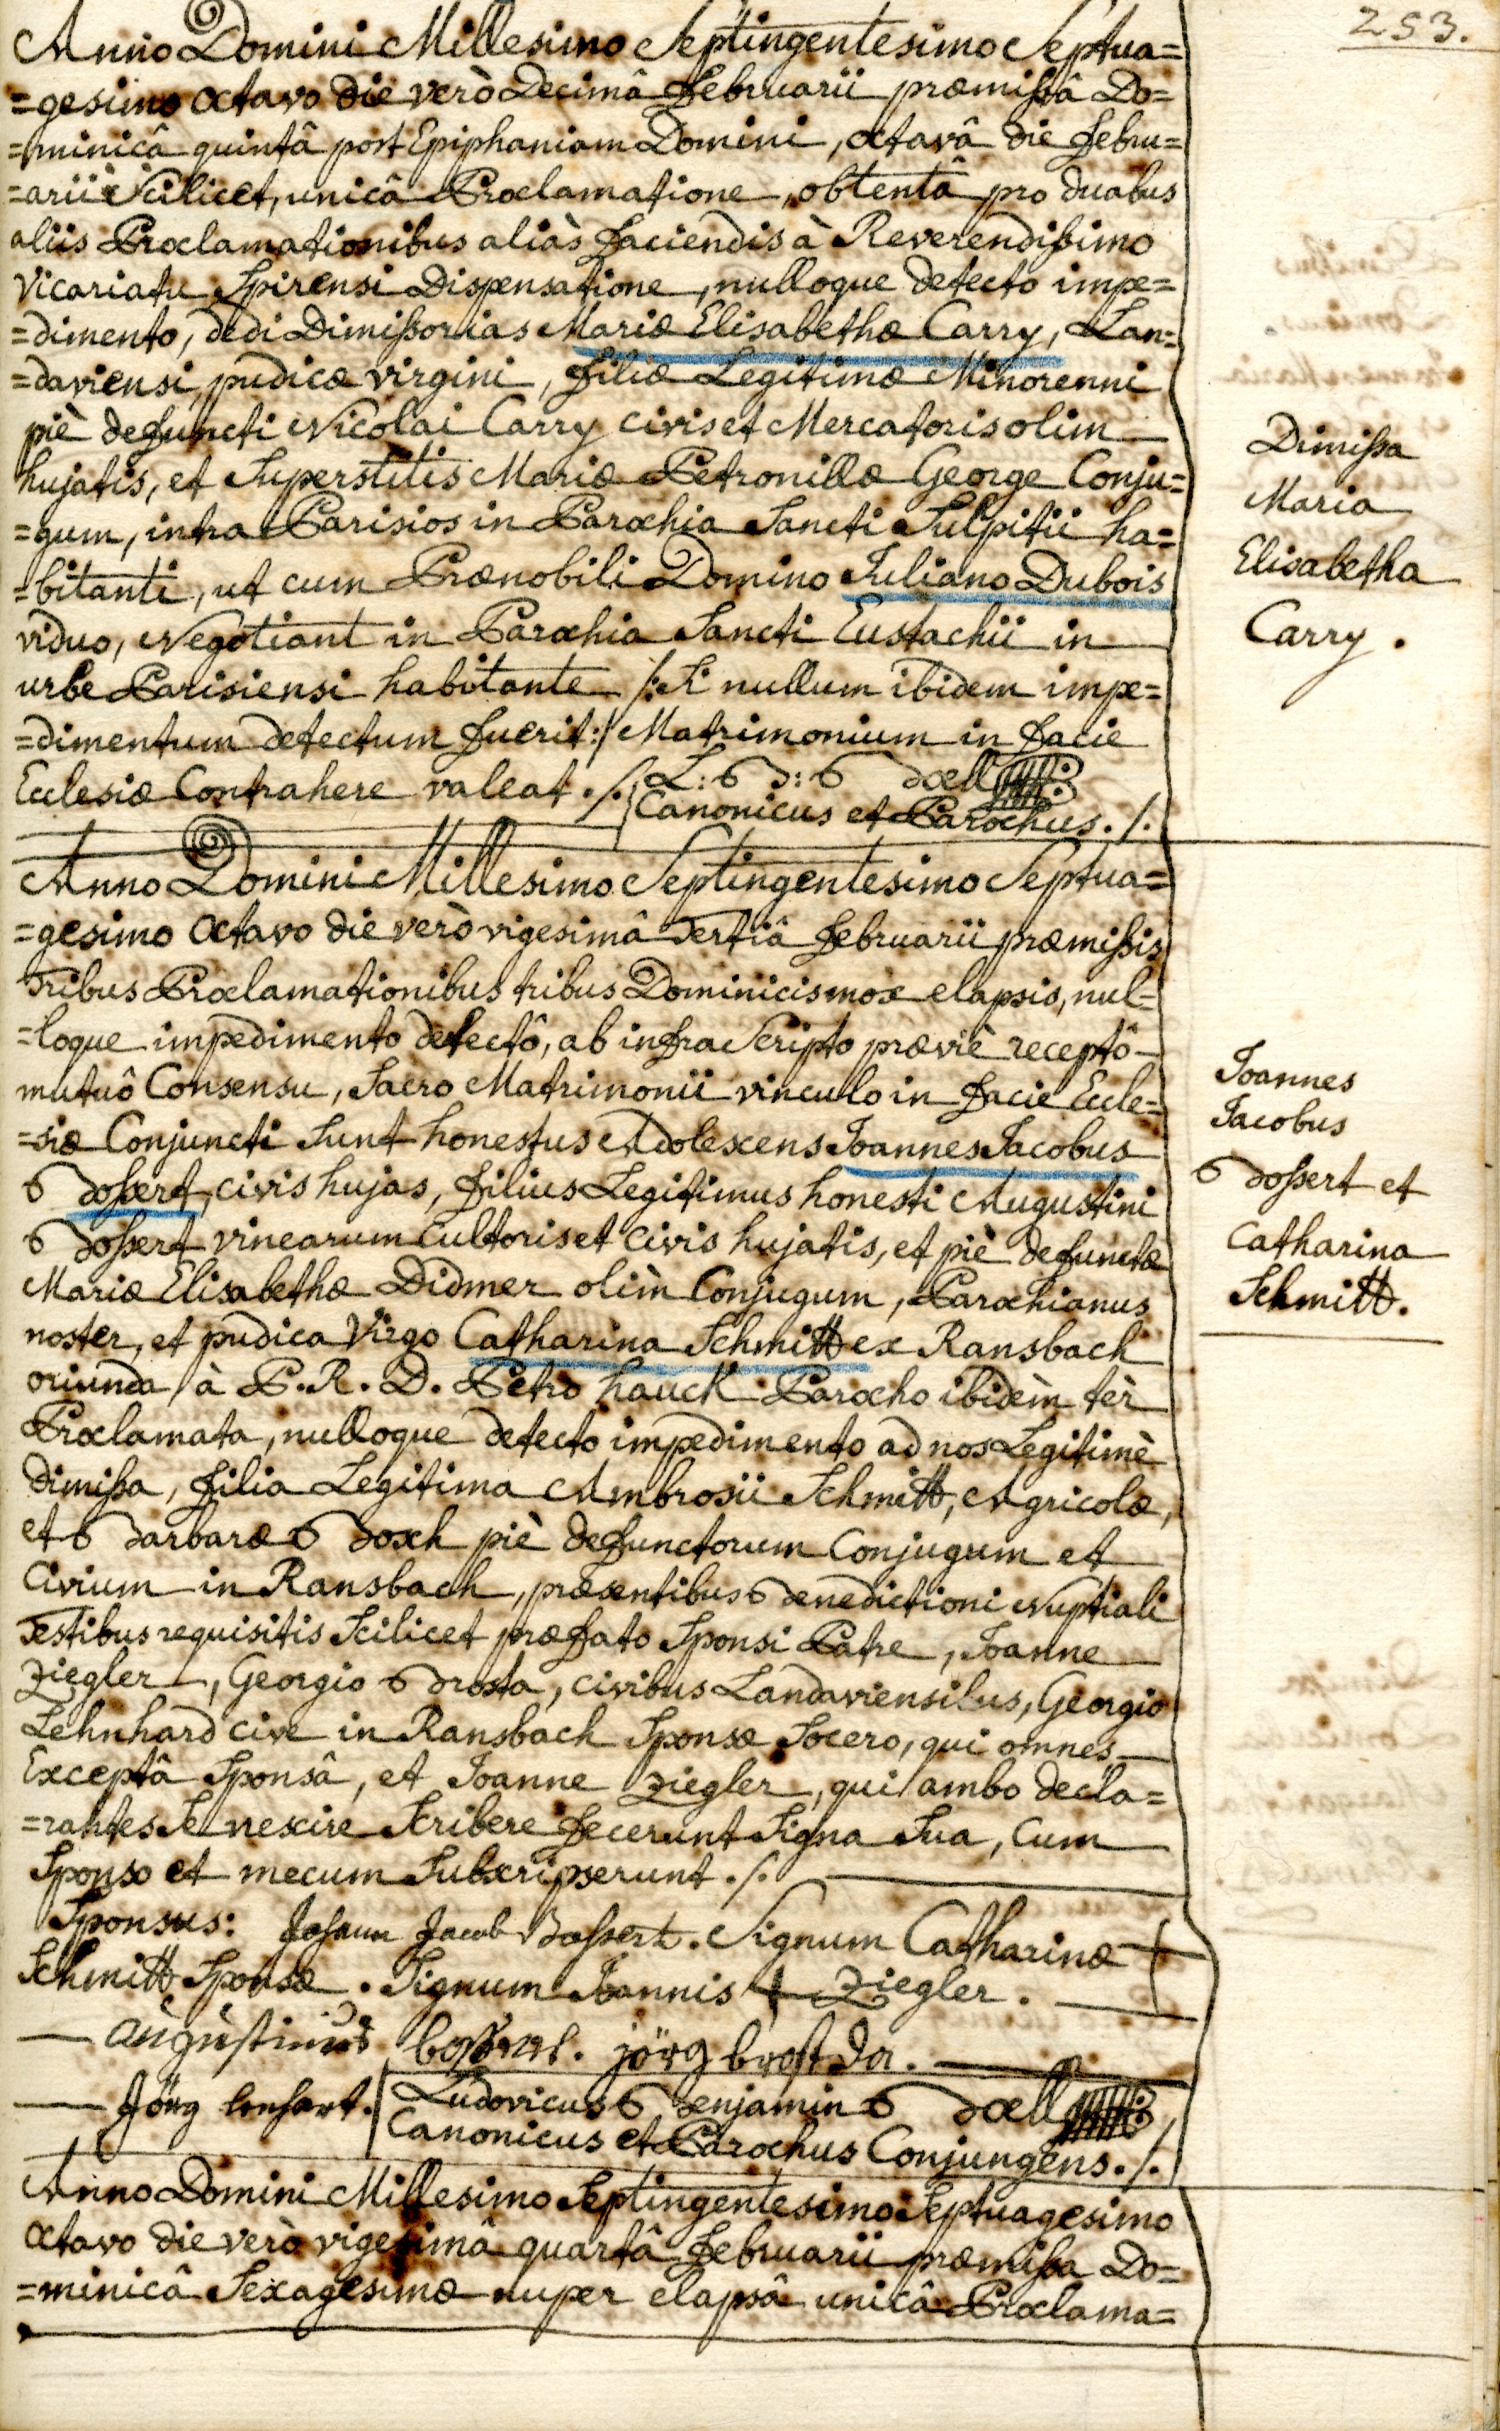 253.
Anno Domini Millesimo Septingentesimo Septua=
=gesimo octavo die verò Decimâ Februarii præmißâ Do=
=minicâ quintâ post Epiphaniam Domini, octavâ die Febru=
=arii Scilicet, unicâ Proclamatione, obtentâ pro duabus
aliis Proclamationibus aliàs faciendis à Reverendißimo
Vicariatu Spirensi Dispensatione, nulloque detecto impe=
=dimento, dedi Dimißorias Mariæ Elisabethæ Carry, Lan=
=daviensi, pudicæ virgini, filiæ Legitimæ Minorenni
piè defuncti Nicolai Carry civis et Mercatoris olim
hujatis, et Superstitis Mariæ Petronillæ George Conju=
=gum, intra Parisios in Parochia Sancti Sulpitii ha=
=bitanti, ut cum Prænobili Domino Juliano Dubois
viduo, Negotiant in Parochia Sancti Eustachii in
urbe Parisiensi habitante /: Si nullum ibidem impe=
=dimentum detectum fuerit :/ Matrimonium in facie
Ecclesiæ Contrahere valeat ./.
L: B: Boell
Canonicus et Parochus ./.
Dimißa
Maria
Elisabetha
Carry .
Anno Domini Millesimo Septingentesimo Septua=
=gesimo octavo die verò vigesimâ Tertiâ Februarii præmißis
Tribus Proclamationibus tribus Dominicis mox elapsis, nul=
=loque impedimento detectô, ab infra Scripto præviè receptô
mutuô Consensu, Sacro Matrimonii vinculo in facie Eccle=
=siæ Conjuncti Sunt honestus Adolescens Joannes Jacobus
Boßert, civis hujas, filius Legitimus honesti Augustini
Boßert vinearum Cultoris et Civis hujatis, et piè defunctæ
Mariæ Elisabethæ Didmer olìm Conjugum, Parochianus
noster, et pudica Virgo Catharina Schmitt ex Ransbach
oriunda, à P. R. D. Petro hauck Parocho ibidèm tèr
Proclamata, nulloque detecto impedimento ad nos Legitimè
Dimißa, filia Legitima Ambrosii Schmitt, Agricolæ,
et Barbaræ Bosch piè defunctorum Conjugum et
Civium in Ransbach, præsentibus Benedictioni Nuptiali
Testibus requisitis Scilicet præfato Sponsi Patre, Joanne
Ziegler, Georgio Brosta, civibus Landaviensibus, Georgio
Lehnhard cive in Ransbach Sponsæ Socero, qui omnes
Exceptâ Sponsâ, et Joanne Ziegler, qui ambo decla=
=rantes Se nescire Scribere fecerunt Signa Sua, Cum
Sponso et mecum Subscripserunt ./.
Joannes
Jacobus
Boßert et
Catharina
Schmitt.
Sponsus: Johann Jacob Boßert. Signum Catharinæ +
Schmitt Sponsæ. Signum Joannis + Ziegler.
augustinus boßert. jörg brosta.
Jörg lenhart.
Ludovicus Benjamin Boell
Canonicus et Parochus Conjungens ./.
Anno Domini Millesimo Septingentesimo Septuagesimo
octavo die verò vigesimâ quartâ Februarii præmißa Do=
=minicâ Sexagesimæ nuper elapsâ unicâ Proclama=